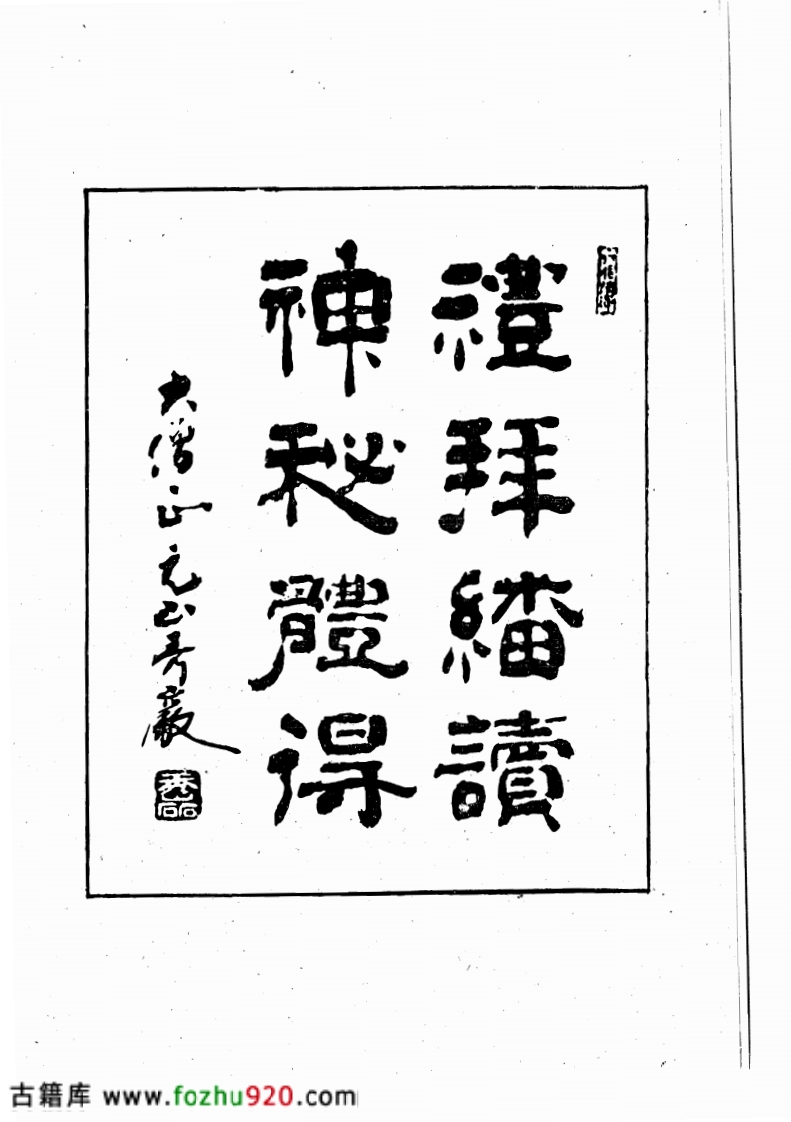 禮拜繙讀
神秘體得
大僧正元山秀嚴
古籍库 www.fozhu920.com